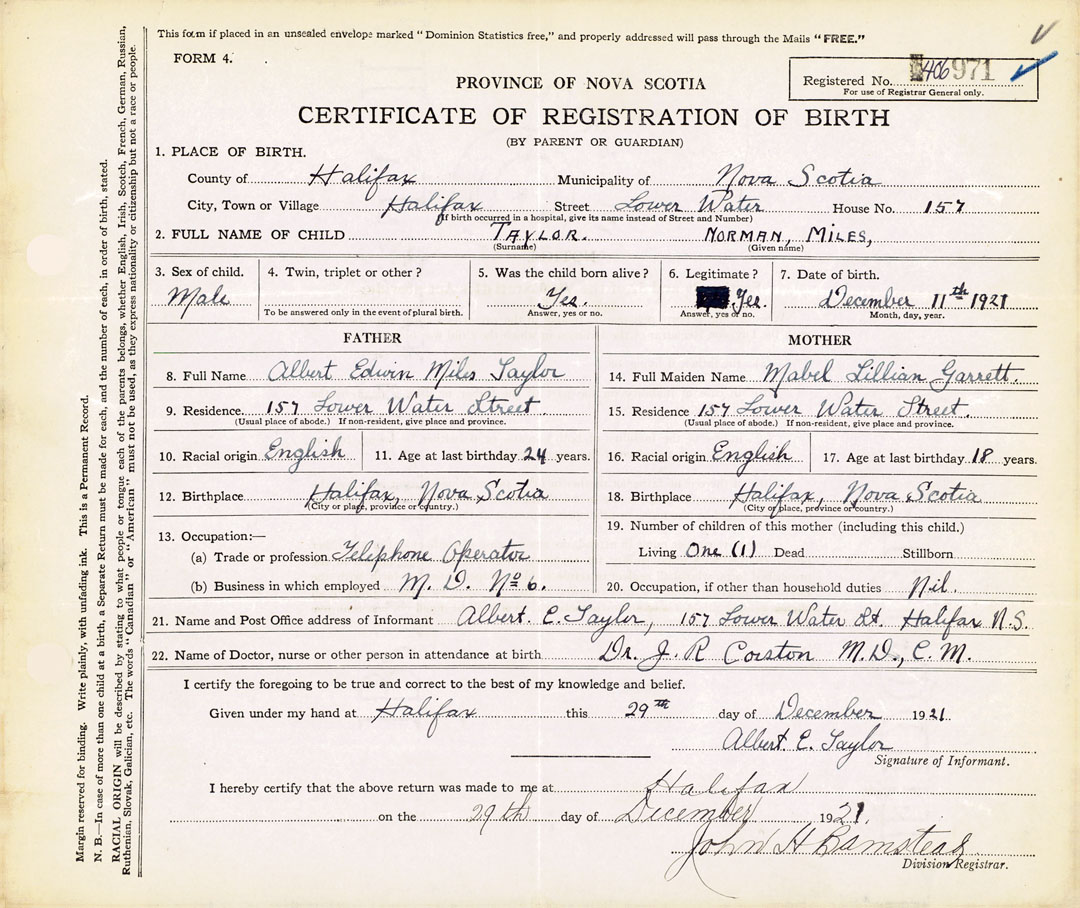 This form if placed in an unsealed envelope marked "Dominion Statistics free," and properly addressed will pass through the Mails "FREE."
FORM 4.
Registered No. 406971
For use of Registrar General only.
PROVINCE OF NOVA SCOTIA
CERTIFICATE OF REGISTRATION OF BIRTH
(BY PARENT OR GUARDIAN)
1. PLACE OF BIRTH.
County of Halifax Municipality of Nova Scotia
City, Town or Village Halifax Street Lower Water House No. 157
(If birth occurred in a hospital, give its name instead of Street and Number)
2. FULL NAME OF CHILD TAYLOR. NORMAN, MILES,
(Surname) (Given name)
3. Sex of child. 4. Twin, triplet or other? 5. Was the child born alive? 6. Legitimate? 7. Date of birth.
Male Yes. Yes. December 11th 1921
To be answered only in the event of plural birth. Answer, yes or no. Answer, yes or no. Month, day, year.
FATHER MOTHER
8. Full Name Albert Edwin Miles Taylor 14. Full Maiden Name Mabel Lillian Garrett.
9. Residence. 157 Lower Water Street. 15. Residence 157 Lower Water Street.
(Usual place of abode.) If non-resident, give place and province. (Usual place of abode.) If non-resident, give place and province.
10. Racial origin English 11. Age at last birthday 24 years. 16. Racial origin English 17. Age at last birthday 18 years.
12. Birthplace Halifax, Nova Scotia 18. Birthplace Halifax, Nova Scotia
(City or place, province or country.) (City or place, province or country.)
13. Occupation:— 19. Number of children of this mother (including this child.)
(a) Trade or profession Teliphone Operator Living One (1) Dead Stillborn
(b) Business in which employed M. D. No 6. 20. Occupation, if other than household duties Nil.
21. Name and Post Office address of Informant Albert E. Taylor, 157 Lower Water St. Halifax N.S.
22. Name of Doctor, nurse or other person in attendance at birth Dr. J. R Corston M.D., C.M.
I certify the foregoing to be true and correct to the best of my knowledge and belief.
Given under my hand at Halifax this 29th day of December 1921.
Albert E. Taylor
Signature of Informant.
I hereby certify that the above return was made to me at Halifax
on the 29th day of December 1921.
John H Bamstead
Division Registrar.
Margin reserved for binding. Write plainly, with unfading ink. This is a Permanent Record.
N. B.—In case of more than one child at a birth, a Separate Return must be made for each, and the number of each, in order of birth, stated.
RACIAL ORIGIN will be described by stating to what people or tongue each of the parents belongs, whether English, Irish, Scotch, French, German, Russian,
Ruthenian, Slovak, Galician, etc. The words "Canadian" or "American" must not be used, as they express nationality or citizenship but not a race or people.